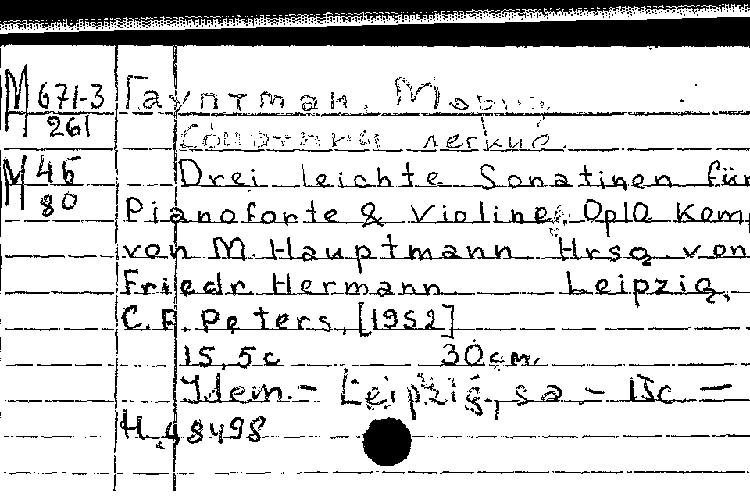 М 671-3 Гауптман, Мориц
261 Сонатины легкие.
М 45 Drei leichte Sonatinen für
80 Pianoforte & Violine, Op10 Komp
von M. Hauptmann Hrsg. von
Friedr. Hermann Leipzig,
C. F. Peters, [1952]
15, 5c 30 см.
Idem. - Leipzig, s a - 15c -
Н 48498